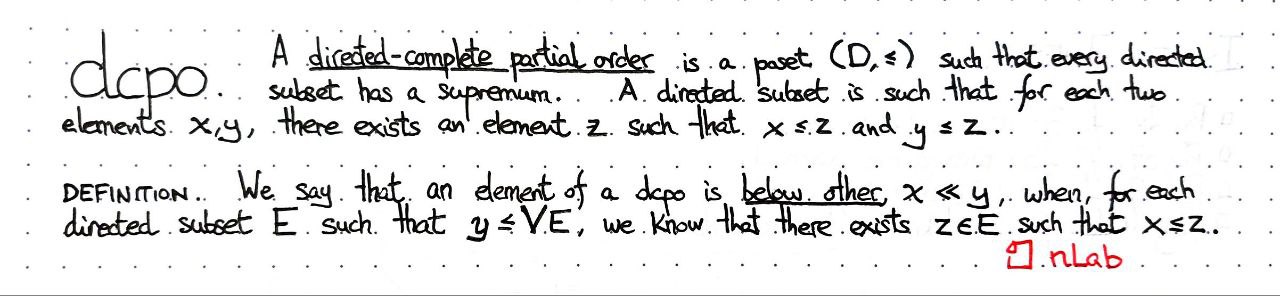 dcpo. A directed-complete partial order is a poset (D,≤) such that every directed
subset has a supremum. A directed subset is such that for each two
elements x,y, there exists an element z such that x ≤ z and y ≤ z.
DEFINITION. We say that an element of a dcpo is below other, x ≪ y, when, for each
directed subset E such that y ≤ ⋁E, we know that there exists z∈E such that x≤z.
nLab